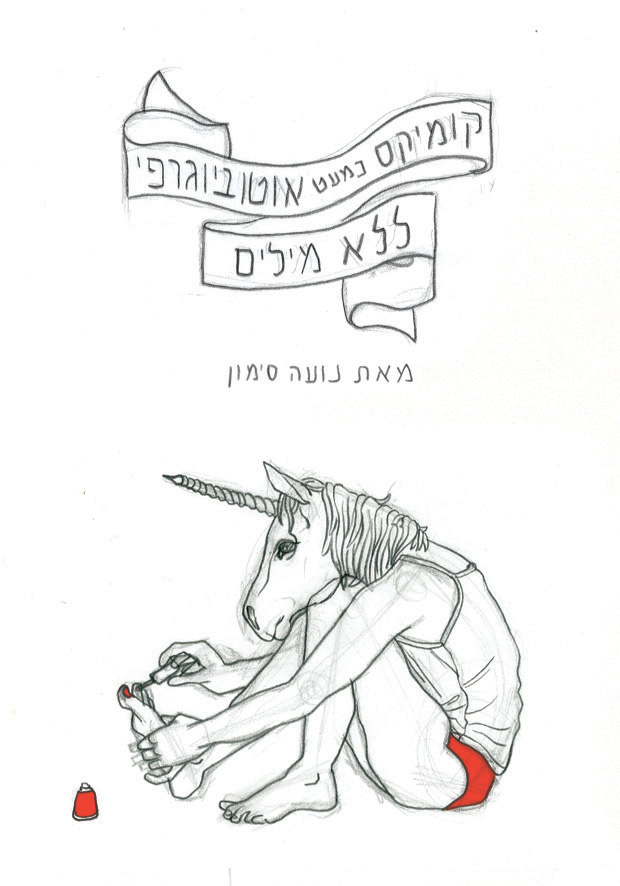 קומיקס כמעט אוטוביוגרפי
ללא מילים
מאת נועה סימון